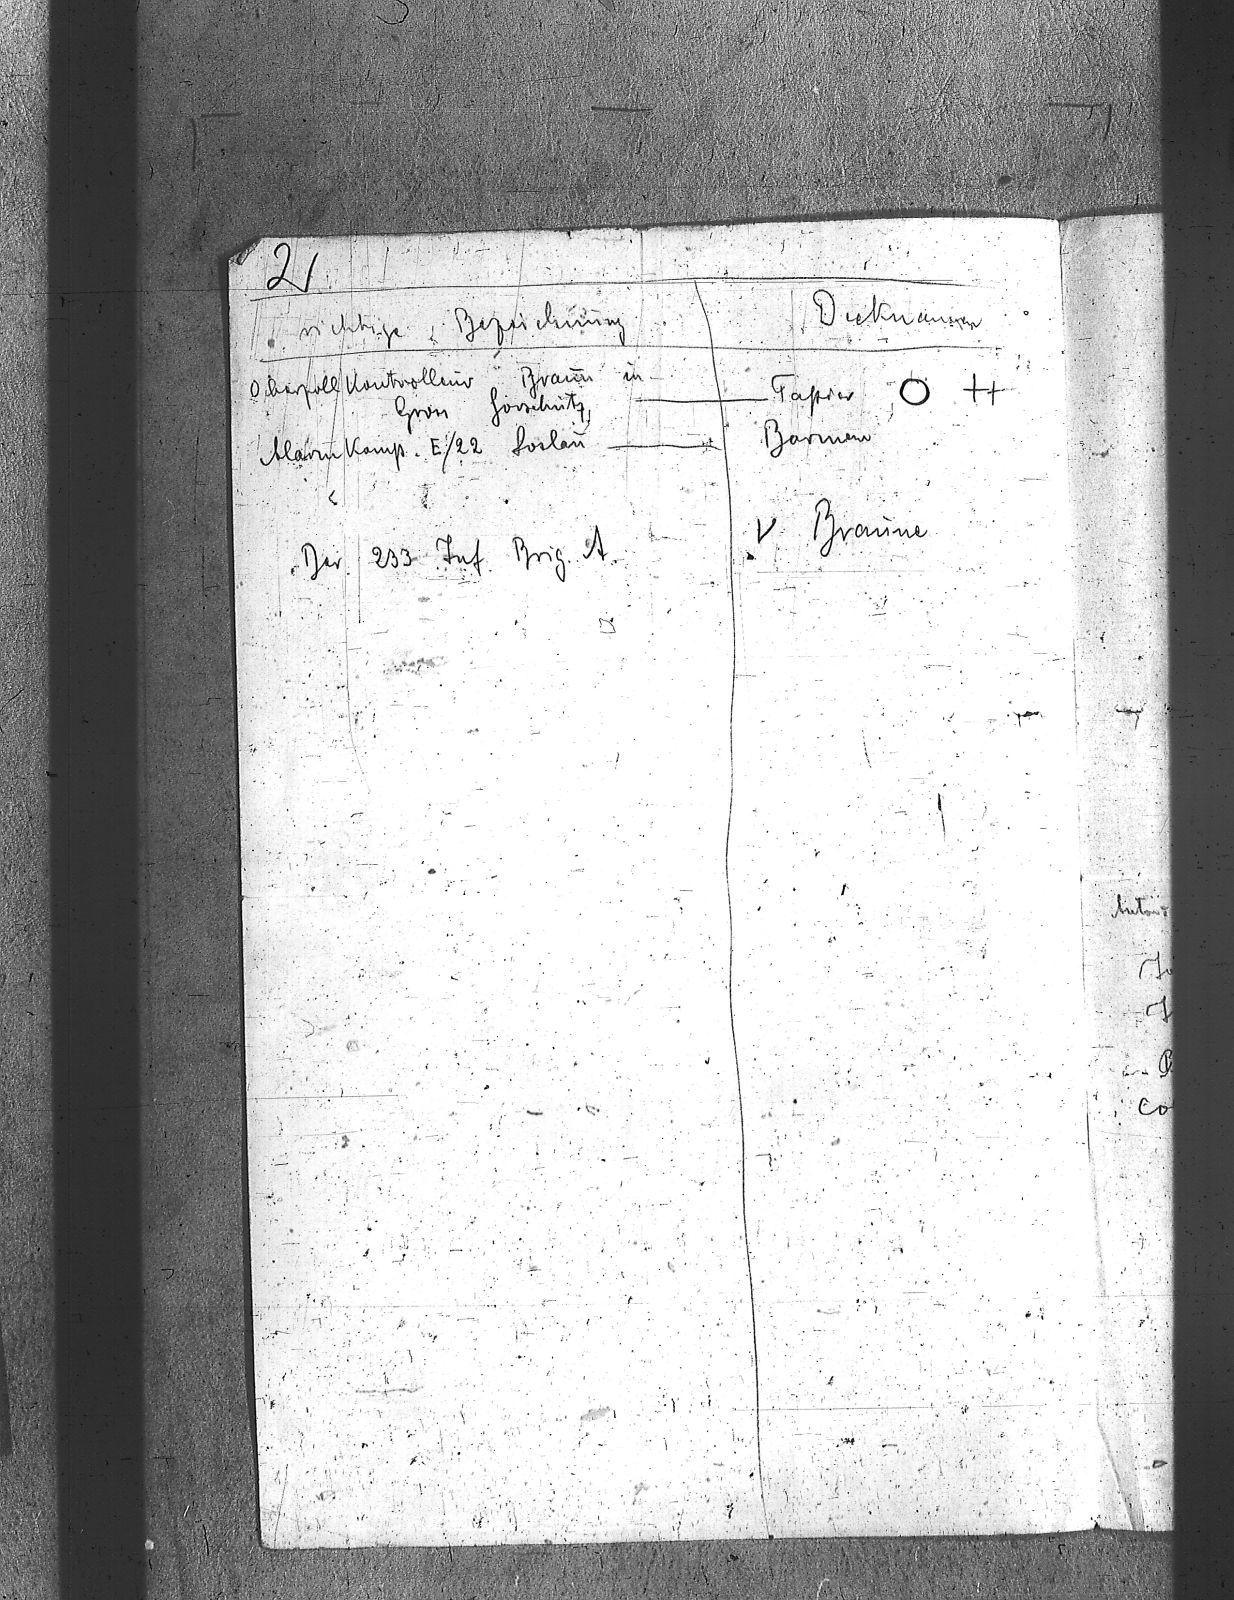 2,
richtige Bezeichnung Decknamen
Oberzoll Kontrolleur Braun in
Gross Gorschütz, Tapier O ++
Alarm Komp. E/22 Loslau Barmen
Der 233 Inf. Brig. A. V Braune
Co